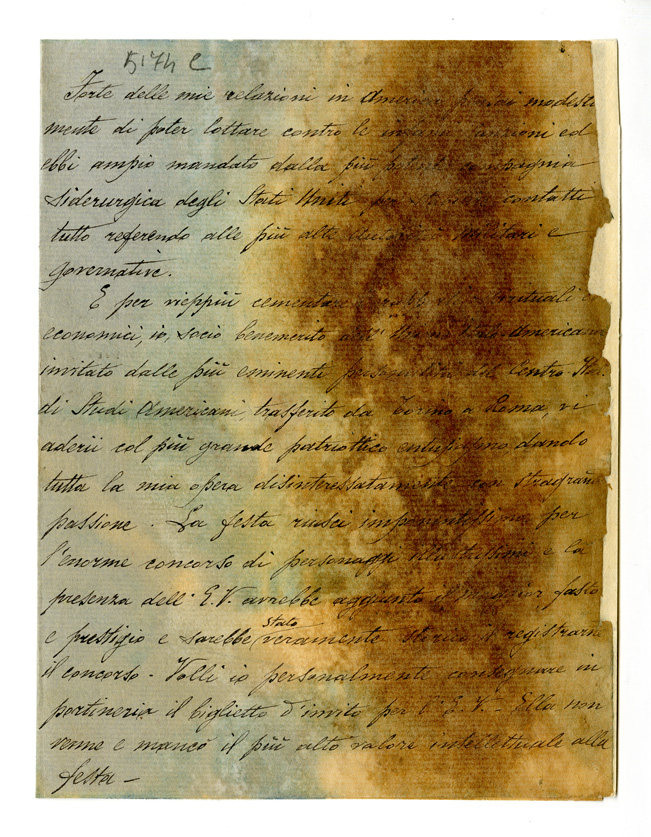 5174 C
Forte delle mie relazioni in America pensai modesta
mente di poter lottare contro le inique sanzioni ed
ebbi ampio mandato dalla più potente compagnia
siderurgica degli Stati Uniti, contatti
tutto referendo alle più alte Autorità Militari e
governative.
E per vieppiù cementare spirituali e
economici, io, socio benemerito dell' Italo Americana
invitato dalle più eminenti personalità del Centro Ital.
di Studi Americani, trasferito da Torino a Roma, vi
aderii col più grande patriottico entusiasmo dando
tutta la mia opera disinteressatamente con stragrande
passione. La festa riuscì imponentissima per
l'enorme concorso di personaggi illustrissimi e la
presenza dell' E.V. avrebbe aggiunto il maggior fasto
e prestigio e sarebbe stato veramente storico il registrarne
il concorso - Volli io personalmente consegnare in
portineria il biglietto d'invito per l' E.V. - Ella non
venne e mancò il più alto valore intellettuale alla
festa -